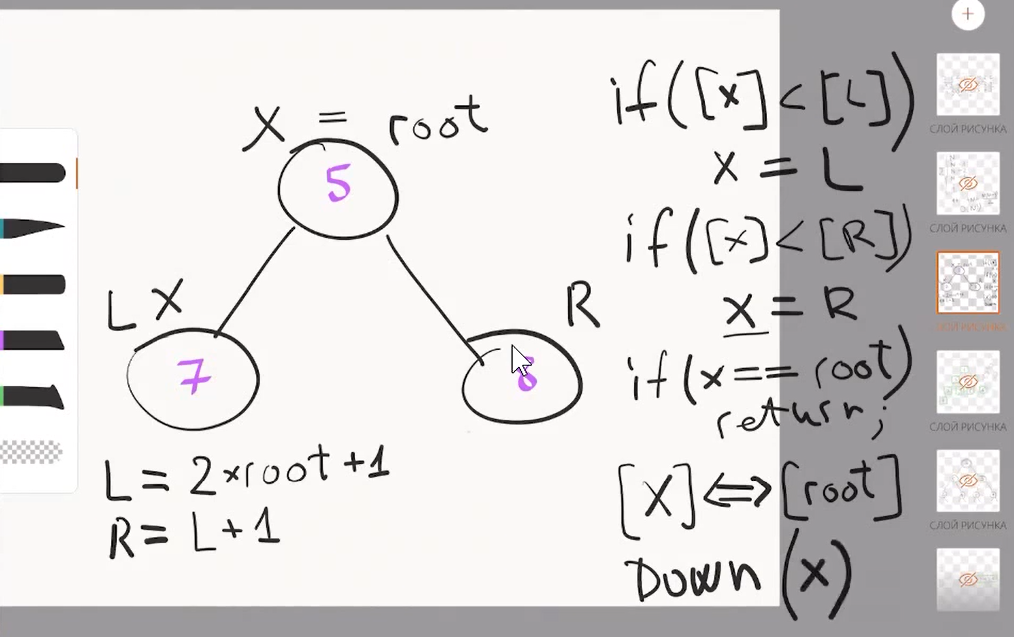 X = root
5
L X
R
7
6
L = 2×root+1
R = L+1
if([x]<[L])
x = L
if([x]<[R])
x = R
if(x==root)
return;
[X]⇔[root]
Down(x)
СЛОЙ РИСУНКА
СЛОЙ РИСУНКА
СЛОЙ РИСУНКА
СЛОЙ РИСУНКА
СЛОЙ РИСУНКА